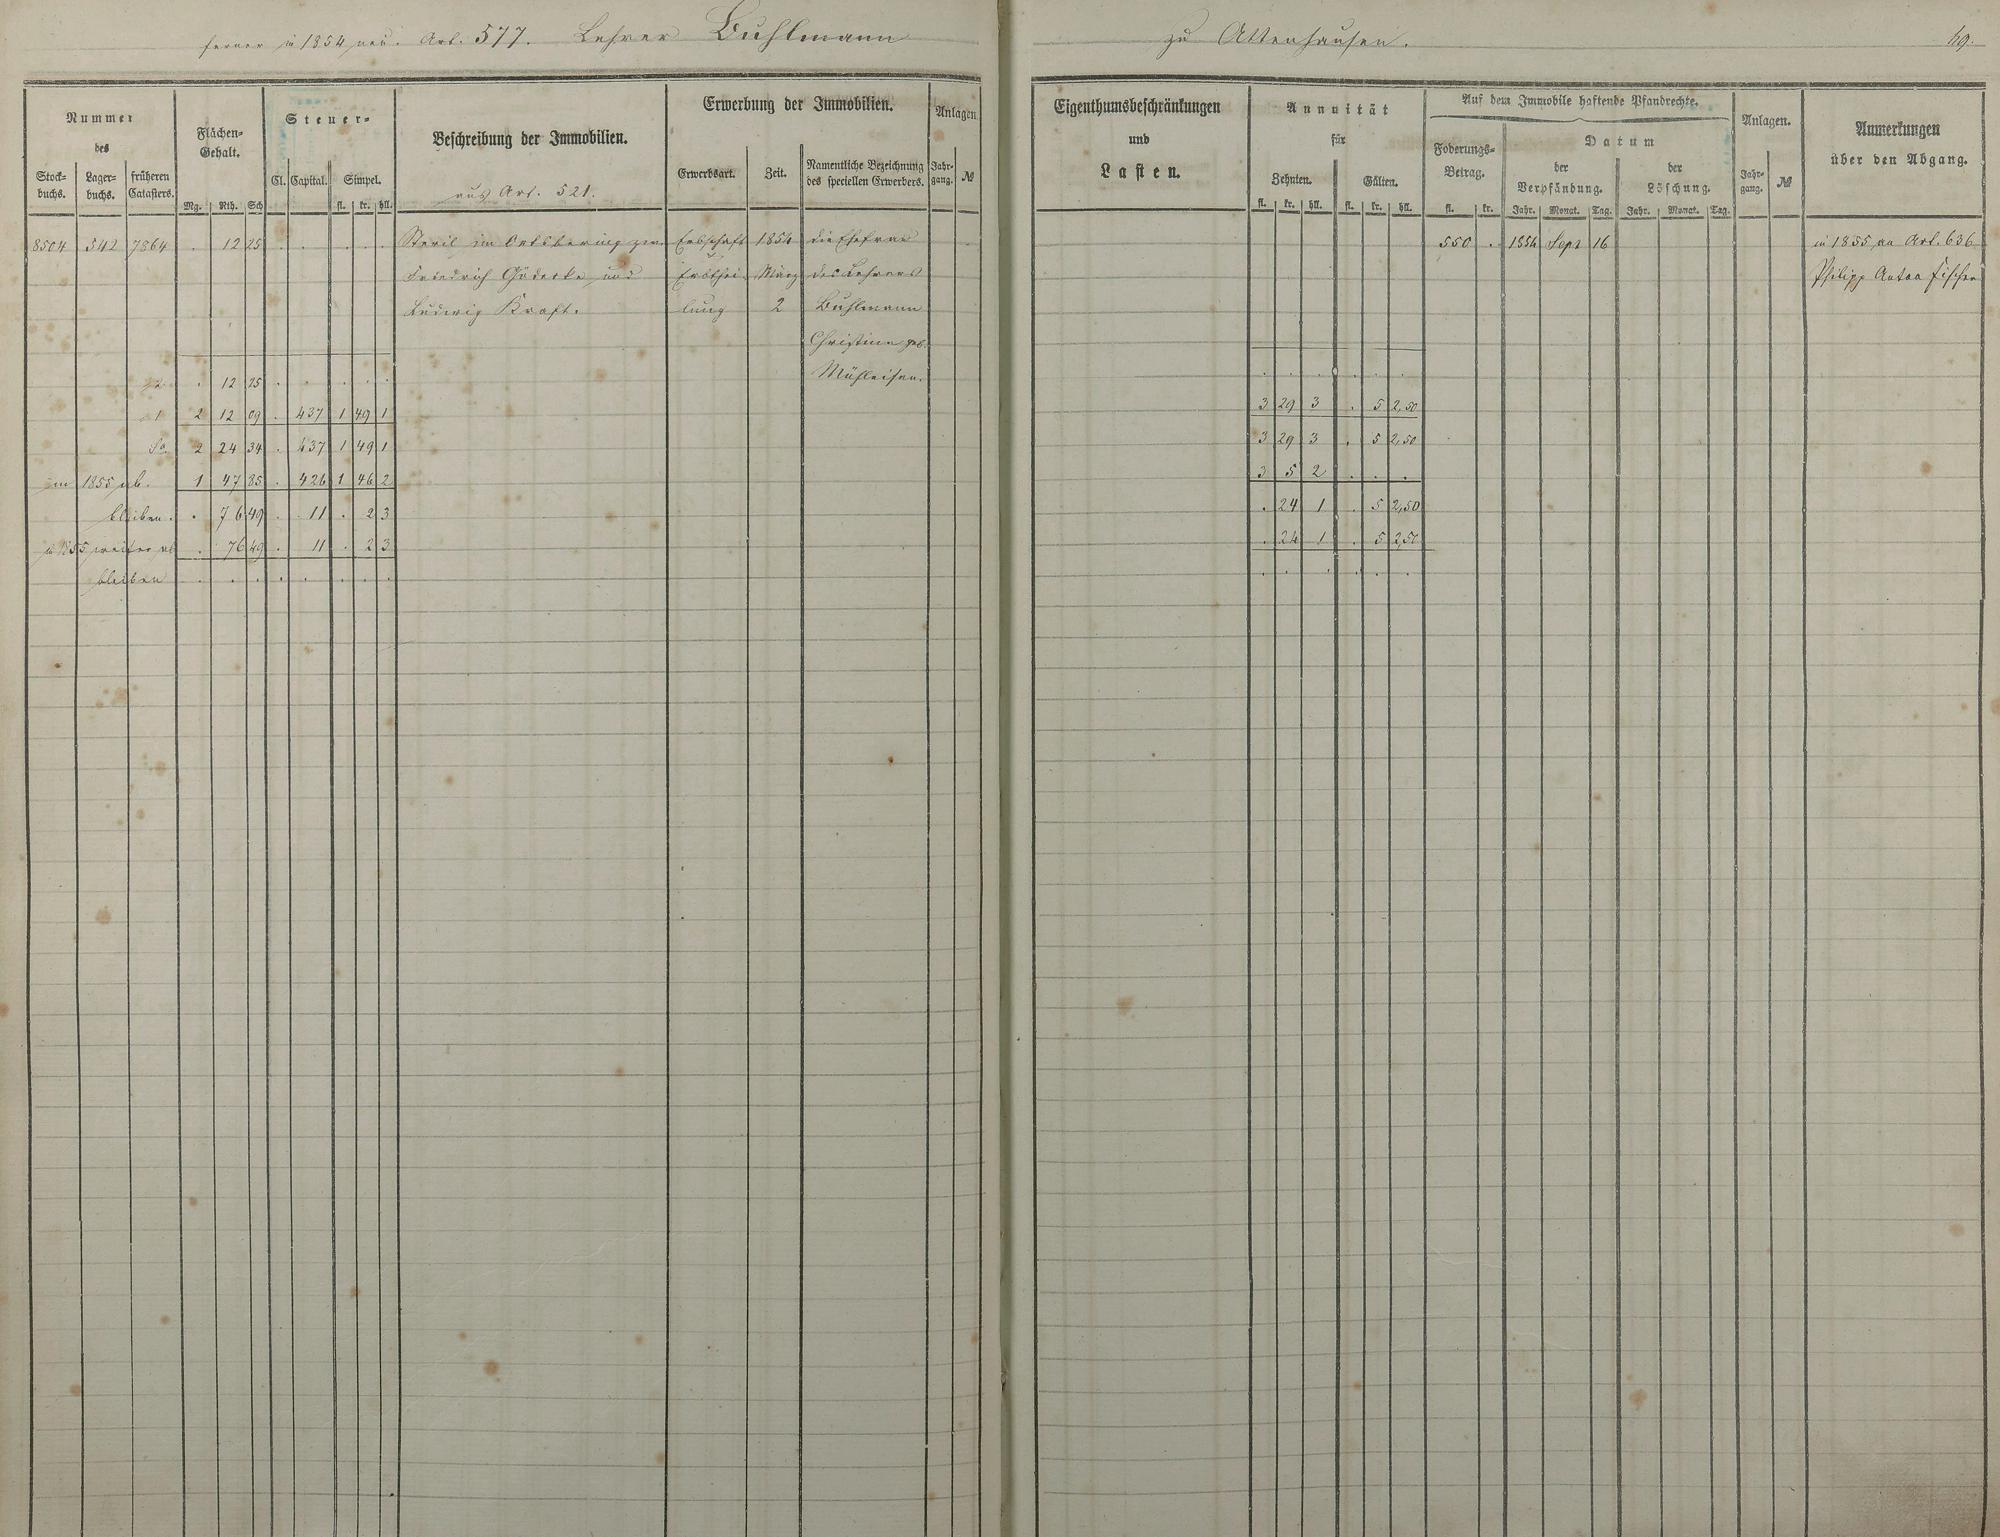 ferner in 1854 neu. Art. 577. Lehrer Buhlmann
zu Attenhausen.
Nummer
des
Stock-
buchs.
Lager-
buchs.
früheren
Catasters.
Flächen-
Gehalt.
Mg. Rth. Sch
Steuer-
Cl. Capital. Simpel.
fl. kr. hll.
Beschreibung der Immobilien.
aus Art. 521.
Erwerbung der Immobilien.
Erwerbsart. Zeit.
Namentliche Bezeichnung
des speciellen Erwerbers.
Anlagen
Jahr-
gang. №
Eigenthumsbeschränkungen
und
Lasten.
Annuität
für
Zehnten. Gülten.
fl. kr. hll. fl. kr. hll.
Auf dem Immobile haftende Pfandrechte.
Foderungs-
Betrag.
fl. kr.
Datum
der
Verpfändung.
der
Löschung.
Jahr. Monat. Tag. Jahr. Monat. Tag.
Anlagen.
Jahr-
gang. №
Anmerkungen
über den Abgang.
8504 542 7864 . 12 25 . . . . . im Ortsbering zw. Erbschaft 1854 die Ehefrau 550 . 1854 Sept 16 in 1855 an Art. 636
Friedrich Gödecke und Erbthei- März des Lehrers Philipp Anton Fischer
Ludwig Kraft. lung 2 Buhlmann
Christine geb.
. 12 25 . . . . . Mühleisen. . . . . . .
2 12 09 . 437 1 49 1 3 29 3 . 5 2,50
Sa. 2 24 34 . 437 1 49 1 3 29 3 . 5 2,50
in 1855 ab. 1 47 85 . 426 1 46 2 3 5 2 . . .
bleiben. . 76 49 . 11 . 2 3 . 24 1 . 5 2,50
in 1855 weiter ab . 76 49 . 11 . 2 3 . 24 1 . 5 2,50
bleiben . . . . . . . . . . . . . .